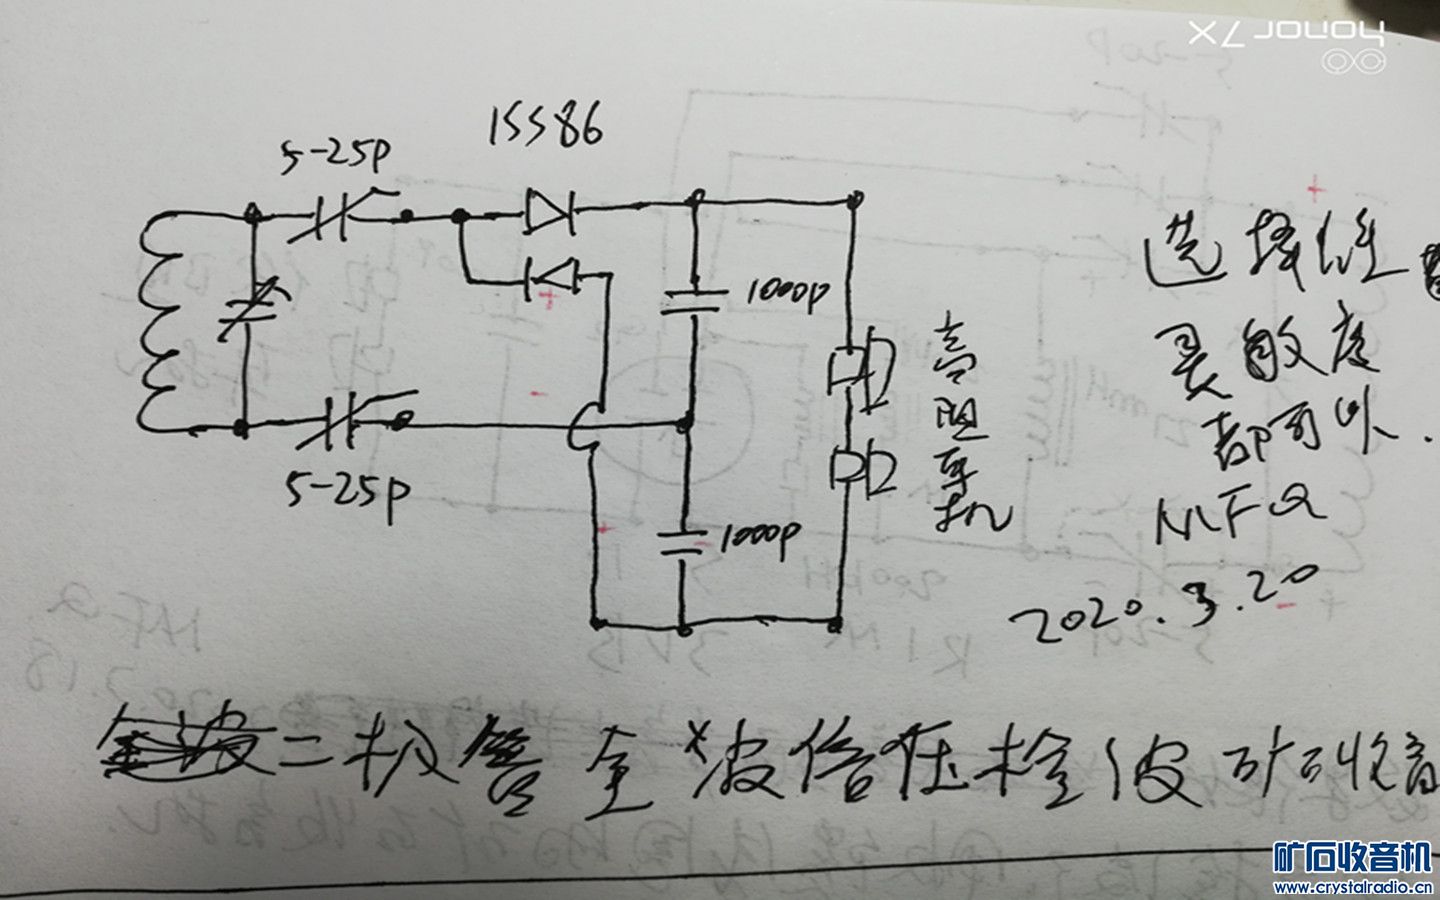 honor 7X
1SS86
5-25P
1000P
高阻耳机
5-25P
1000P
选择性
灵敏度
都可以.
MFQ
2020.3.20
二极管全波倍压检波矿石收音
矿石收音机
www.crystalradio.cn